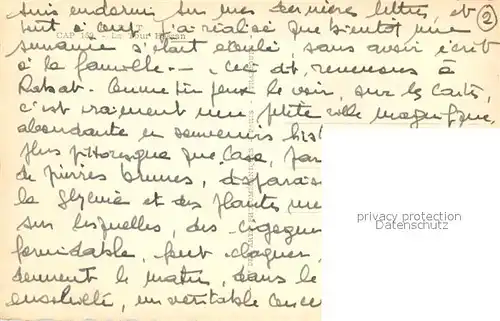 suis endormi sur mes dernières lettres, et
tout à coup j'ai réalisé que bientôt une
CAP 158 - La Tour Hassan
semaine s'était écoulée, sans avoir écrit
à la famille. - Ceci dit, revenons à
Rabat. Comme tu peux le voir, sur les cartes,
c'est vraiment une petite ville magnifique,
abondante en souvenirs his
plus pittoresque que Casa, par
de pierres brunes, disparais
la glycine et des plantes
sur lesquelles, des cigognes
formidable, font claquer
le matin, dans le
ensoleillé, un véritable conce
2
privacy protection
Datenschutz